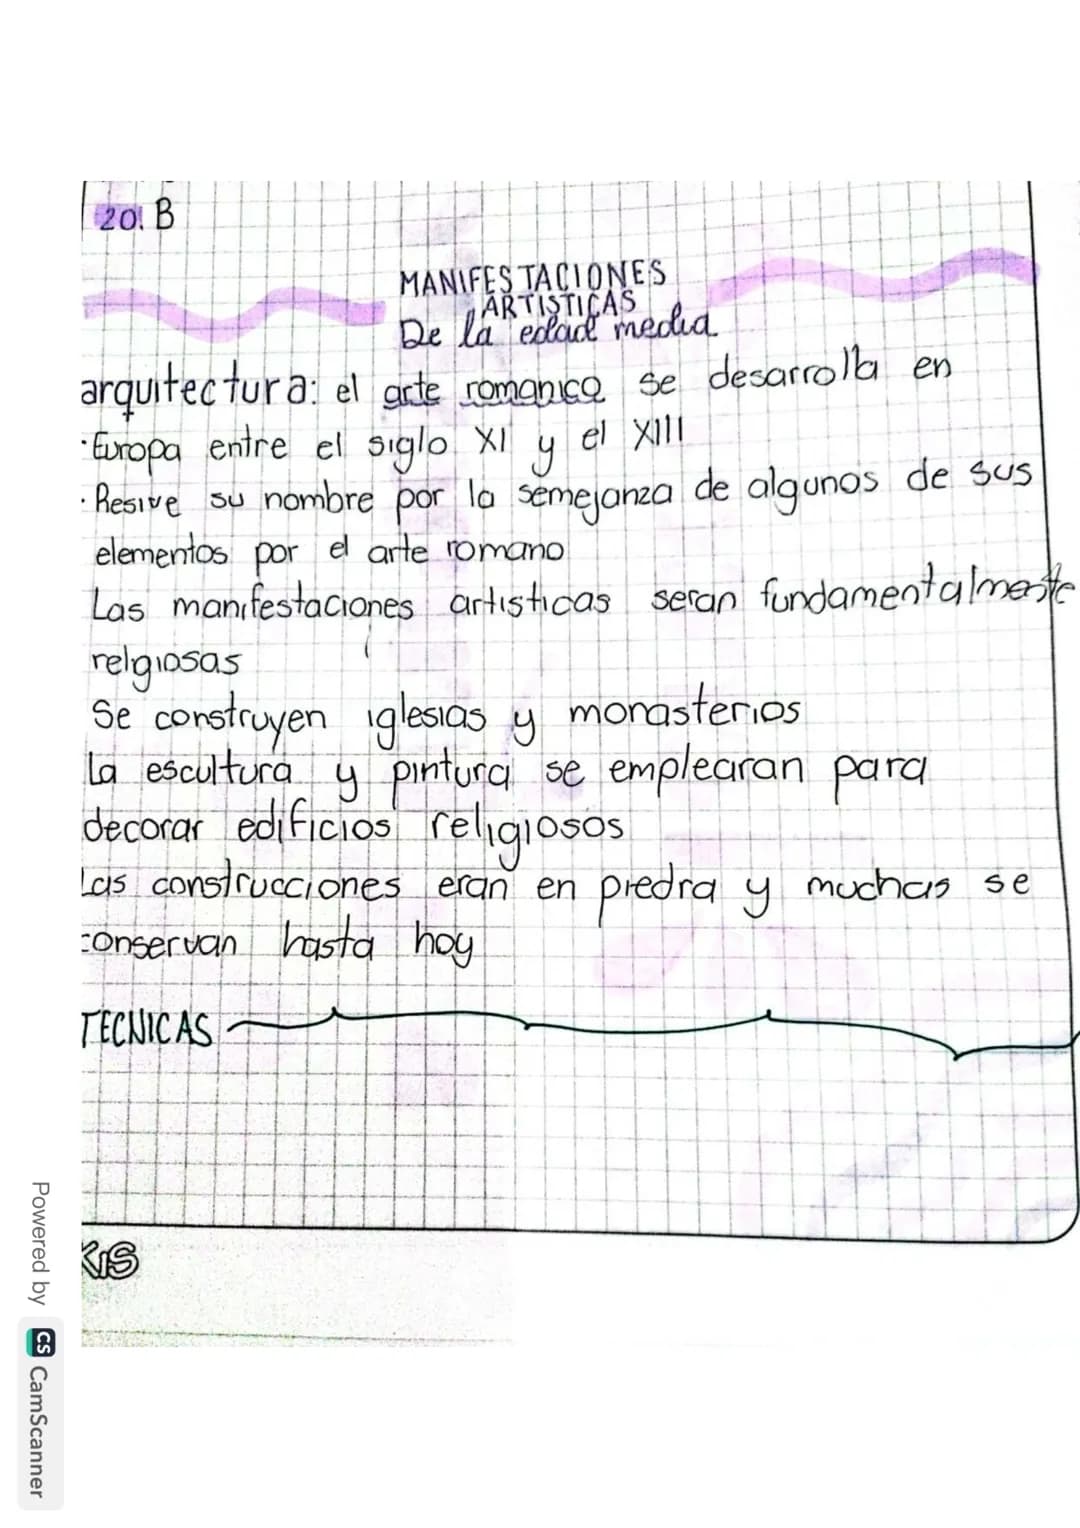 20. B
MANIFESTACIONES
ARTISTICAS
De la edad media
arquitectura: el arte romanico se desarrolla en
·Europa entre el siglo XI y el XIII
·Resive su nombre por la semejanza de algunos de sus
elementos por el arte romano
Las manifestaciones artisticas seran fundamentalmente
relgiosas
Se construyen iglesias y monasterios
La escultura y pintura se emplearan para
decorar edificios religiosos
Las construcciones eran en piedra y muchas se
conservan hasta hoy
TECNICAS
KIS
Powered by CS CamScanner